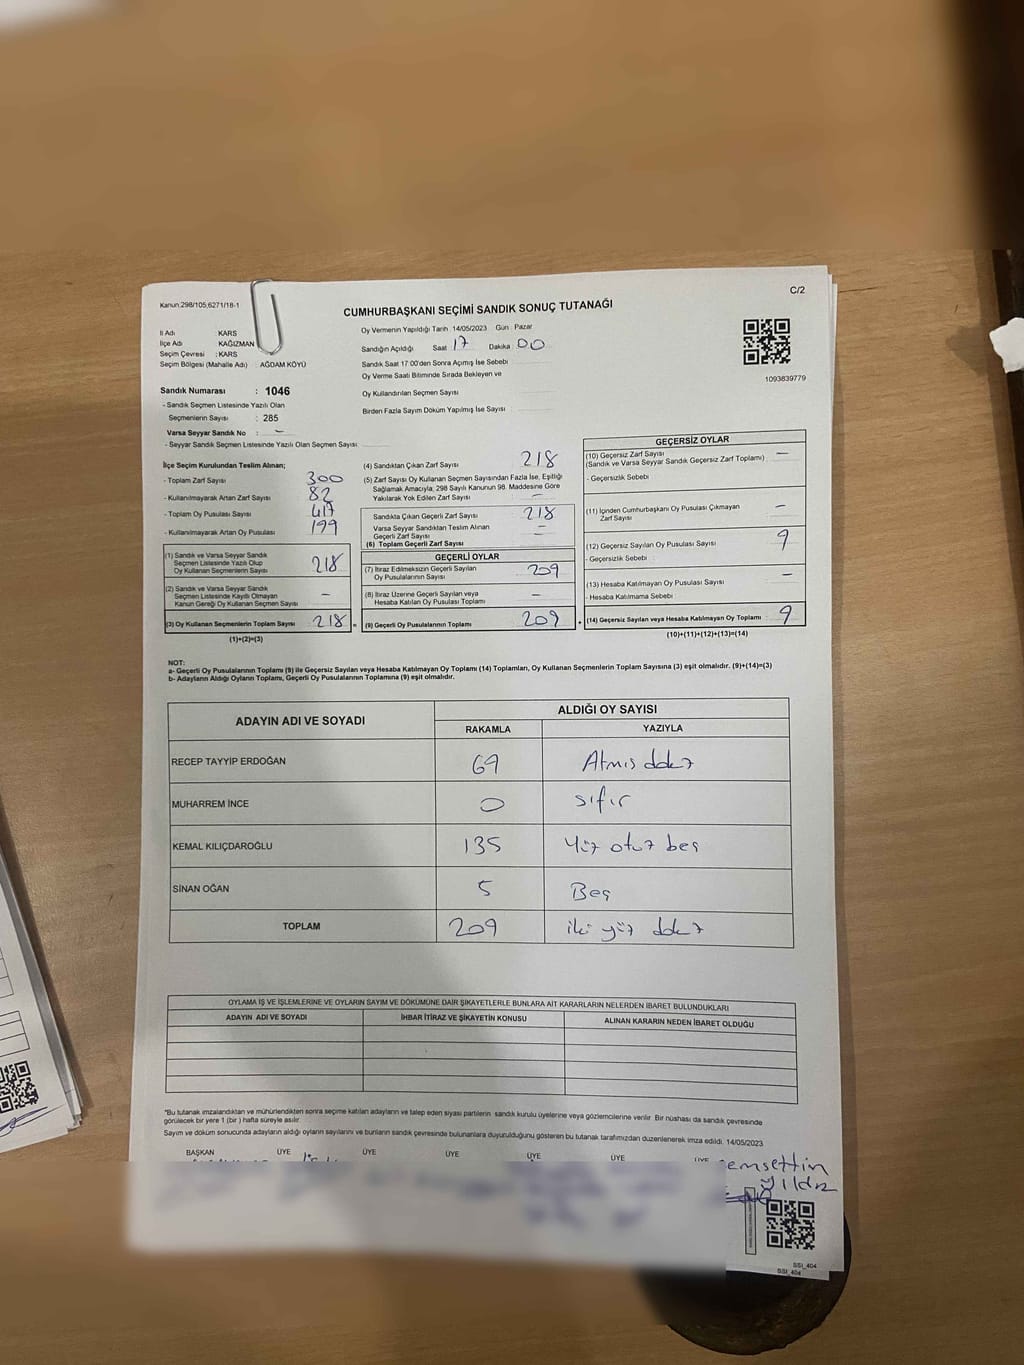 Kanun:298/105;6271/18-1
C/2
CUMHURBAŞKANI SEÇİMİ SANDIK SONUÇ TUTANAĞI
İl Adı KARS
İlçe Adı KAĞIZMAN
Seçim Çevresi : KARS
Seçim Bölgesi (Mahalle Adı) : AĞDAM KÖYÜ
Sandık Numarası : 1046
- Sandık Seçmen Listesinde Yazılı Olan
Seçmenlerin Sayısı : 285
Varsa Seyyar Sandık No : -
- Seyyar Sandık Seçmen Listesinde Yazılı Olan Seçmen Sayısı:
Oy Vermenin Yapıldığı Tarih 14/05/2023 Gün : Pazar
Sandığın Açıldığı Saat 17 Dakika : 00
Sandık Saat 17:00'den Sonra Açımış İse Sebebi
Oy Verme Saati Bitiminde Sırada Bekleyen ve
Oy Kullandırılan Seçmen Sayısı
Birden Fazla Sayım Döküm Yapılmış İse Sayısı
1093839779
İlçe Seçim Kurulundan Teslim Alınan;
- Toplam Zarf Sayısı 300
- Kullanılmayarak Artan Zarf Sayısı 82
- Toplam Oy Pusulası Sayısı 417
- Kullanılmayarak Artan Oy Pusulası 199
(1) Sandık ve Varsa Seyyar Sandık
Seçmen Listesinde Yazılı Olup
Oy Kullanan Seçmenlerin Sayısı 218
(2) Sandık ve Varsa Seyyar Sandık
Seçmen Listesinde Kayıtlı Olmayan
Kanun Gereği Oy Kullanan Seçmen Sayısı -
(3) Oy Kullanan Seçmenlerin Toplam Sayısı 218 =
(1)+(2)=(3)
(4) Sandıktan Çıkan Zarf Sayısı 218
(5) Zarf Sayısı Oy Kullanan Seçmen Sayısından Fazla İse, Eşitliği
Sağlamak Amacıyla; 298 Sayılı Kanunun 98. Maddesine Göre
Yakılarak Yok Edilen Zarf Sayısı -
Sandıkta Çıkan Geçerli Zarf Sayısı 218
Varsa Seyyar Sandıktan Teslim Alınan
Geçerli Zarf Sayısı -
(6) Toplam Geçerli Zarf Sayısı
GEÇERLİ OYLAR
(7) İtiraz Edilmeksizin Geçerli Sayılan
Oy Pusulalarının Sayısı 209
(8) İtiraz Üzerine Geçerli Sayılan veya
Hesaba Katılan Oy Pusulası Toplamı -
(9) Geçerli Oy Pusulalarının Toplamı 209 +
GEÇERSİZ OYLAR
(10) Geçersiz Zarf Sayısı -
(Sandık ve Varsa Seyyar Sandık Geçersiz Zarf Toplamı)
- Geçersizlik Sebebi
(11) İçinden Cumhurbaşkanı Oy Pusulası Çıkmayan
Zarf Sayısı -
(12) Geçersiz Sayılan Oy Pusulası Sayısı 9
- Geçersizlik Sebebi
(13) Hesaba Katılmayan Oy Pusulası Sayısı -
- Hesaba Katılmama Sebebi
(14) Geçersiz Sayılan veya Hesaba Katılmayan Oy Toplamı 9
(10)+(11)+(12)+(13)=(14)
NOT:
a- Geçerli Oy Pusulalarının Toplamı (9) ile Geçersiz Sayılan veya Hesaba Katılmayan Oy Toplamı (14) Toplamları, Oy Kullanan Seçmenlerin Toplam Sayısına (3) eşit olmalıdır. (9)+(14)=(3)
b- Adayların Aldığı Oyların Toplamı, Geçerli Oy Pusulalarının Toplamına (9) eşit olmalıdır.
ADAYIN ADI VE SOYADI ALDIĞI OY SAYISI
RAKAMLA YAZIYLA
RECEP TAYYİP ERDOĞAN 69 Atmış dokuz
MUHARREM İNCE 0 sıfır
KEMAL KILIÇDAROĞLU 135 Yüz otuz beş
SİNAN OĞAN 5 Beş
TOPLAM 209 iki yüz dokuz
OYLAMA İŞ VE İŞLEMLERİNE VE OYLARIN SAYIM VE DÖKÜMÜNE DAİR ŞİKAYETLERLE BUNLARA AİT KARARLARIN NELERDEN İBARET BULUNDUKLARI
ADAYIN ADI VE SOYADI İHBAR İTİRAZ VE ŞİKAYETİN KONUSU ALINAN KARARIN NEDEN İBARET OLDUĞU
*Bu tutanak imzalandıktan ve mühürlendikten sonra seçime katılan adayların ve talep eden siyasi partilerin sandık kurulu üyelerine veya gözlemcilerine verilir. Bir nüshası da sandık çevresinde
görülecek bir yere 1 (bir) hafta süreyle asılır.
Sayım ve döküm sonucunda adayların aldığı oyların sayılarını ve bunların sandık çevresinde bulunanlara duyurulduğunu gösteren bu tutanak tarafımızdan düzenlenerek imza edildi. 14/05/2023
BAŞKAN ÜYE ÜYE ÜYE ÜYE ÜYE ÜYE
emsettin
Yıldız
SSI_404
SSI_404